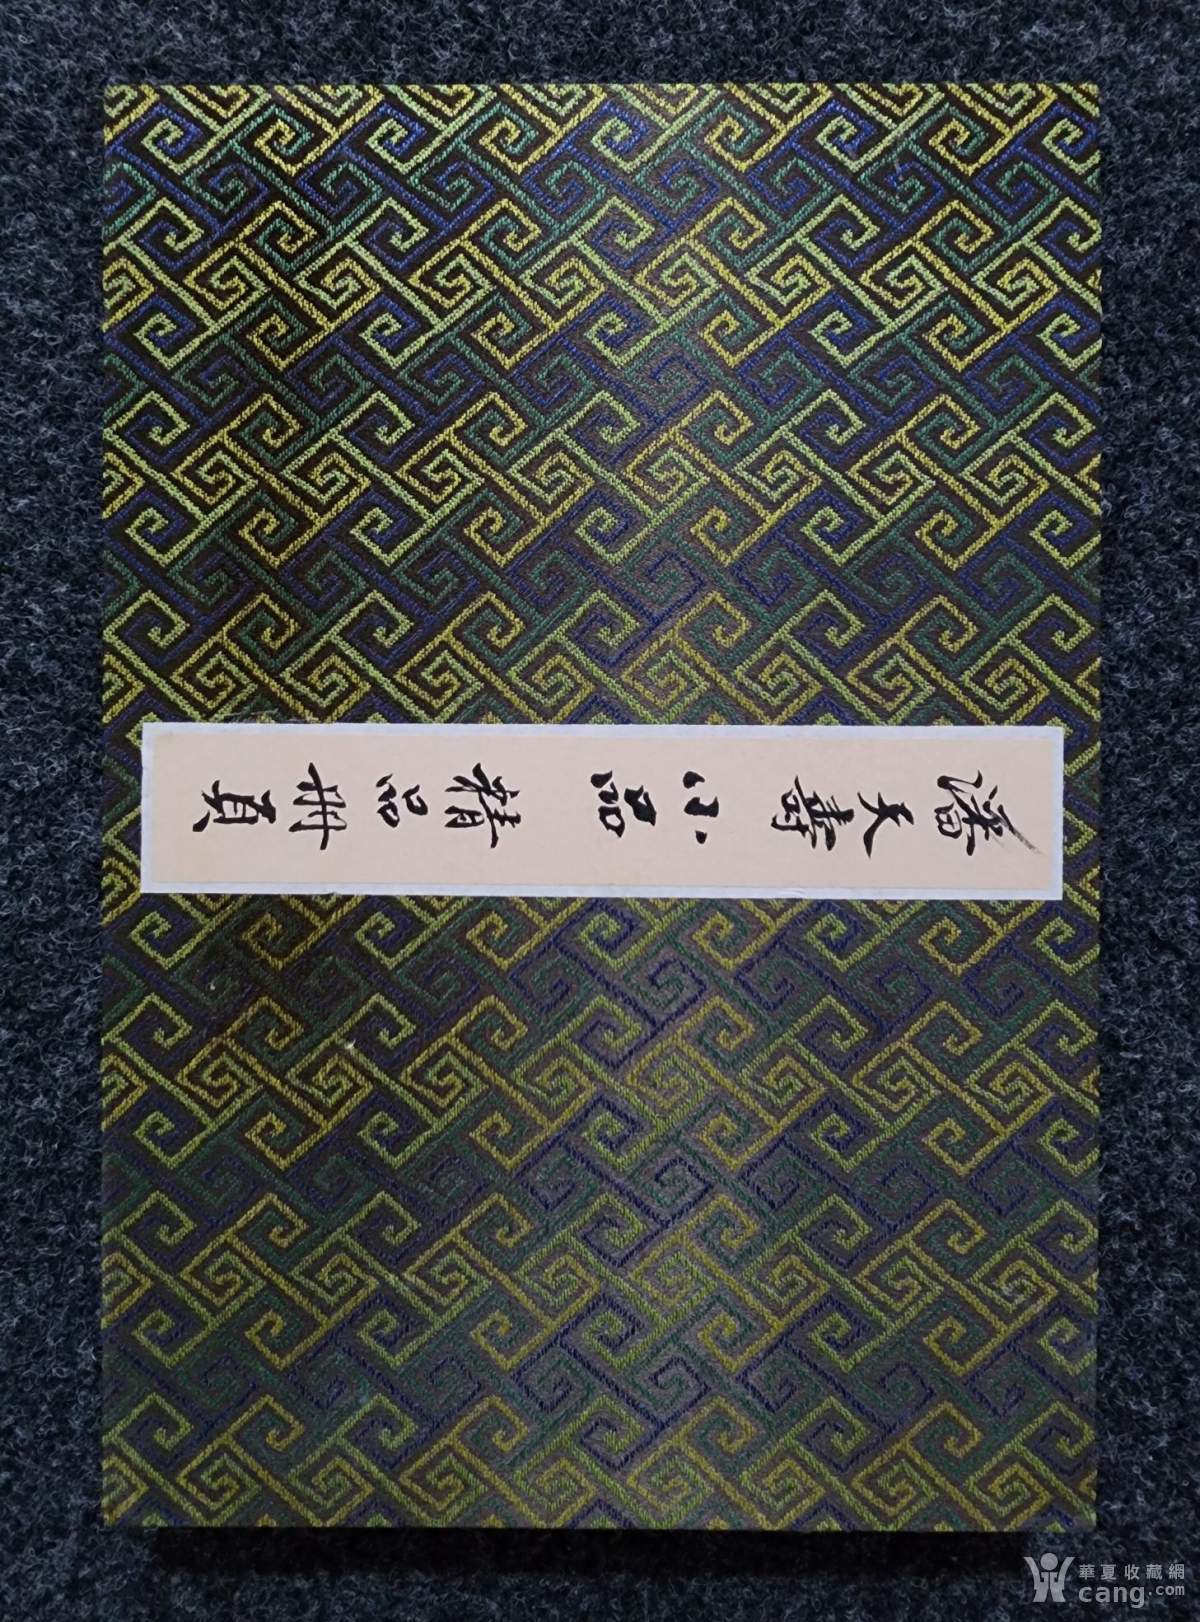 潘天寿小品精品册頁
華夏收藏網
cang.com